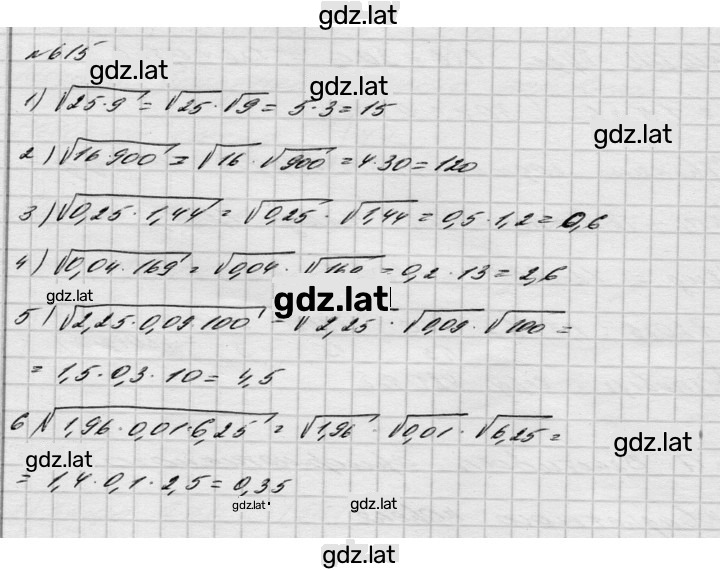 gdz.lat
№615
gdz.lat
gdz.lat
1) √25·9 = √25 · √9 = 5·3 = 15
gdz.lat
2) √16·900 = √16 · √900 = 4·30 = 120
3) √0,25·1,44 = √0,25 · √1,44 = 0,5·1,2 = 0,6
4) √0,04·169 = √0,04 · √169 = 0,2·13 = 2,6
gdz.lat
gdz.lat
5) √2,25·0,09·100 = √2,25 · √0,09 · √100 =
= 1,5·0,3·10 = 4,5
6) √1,96·0,01·6,25 = √1,96 · √0,01 · √6,25 =
gdz.lat
gdz.lat
= 1,4·0,1·2,5 = 0,35
gdz.lat
gdz.lat
gdz.lat